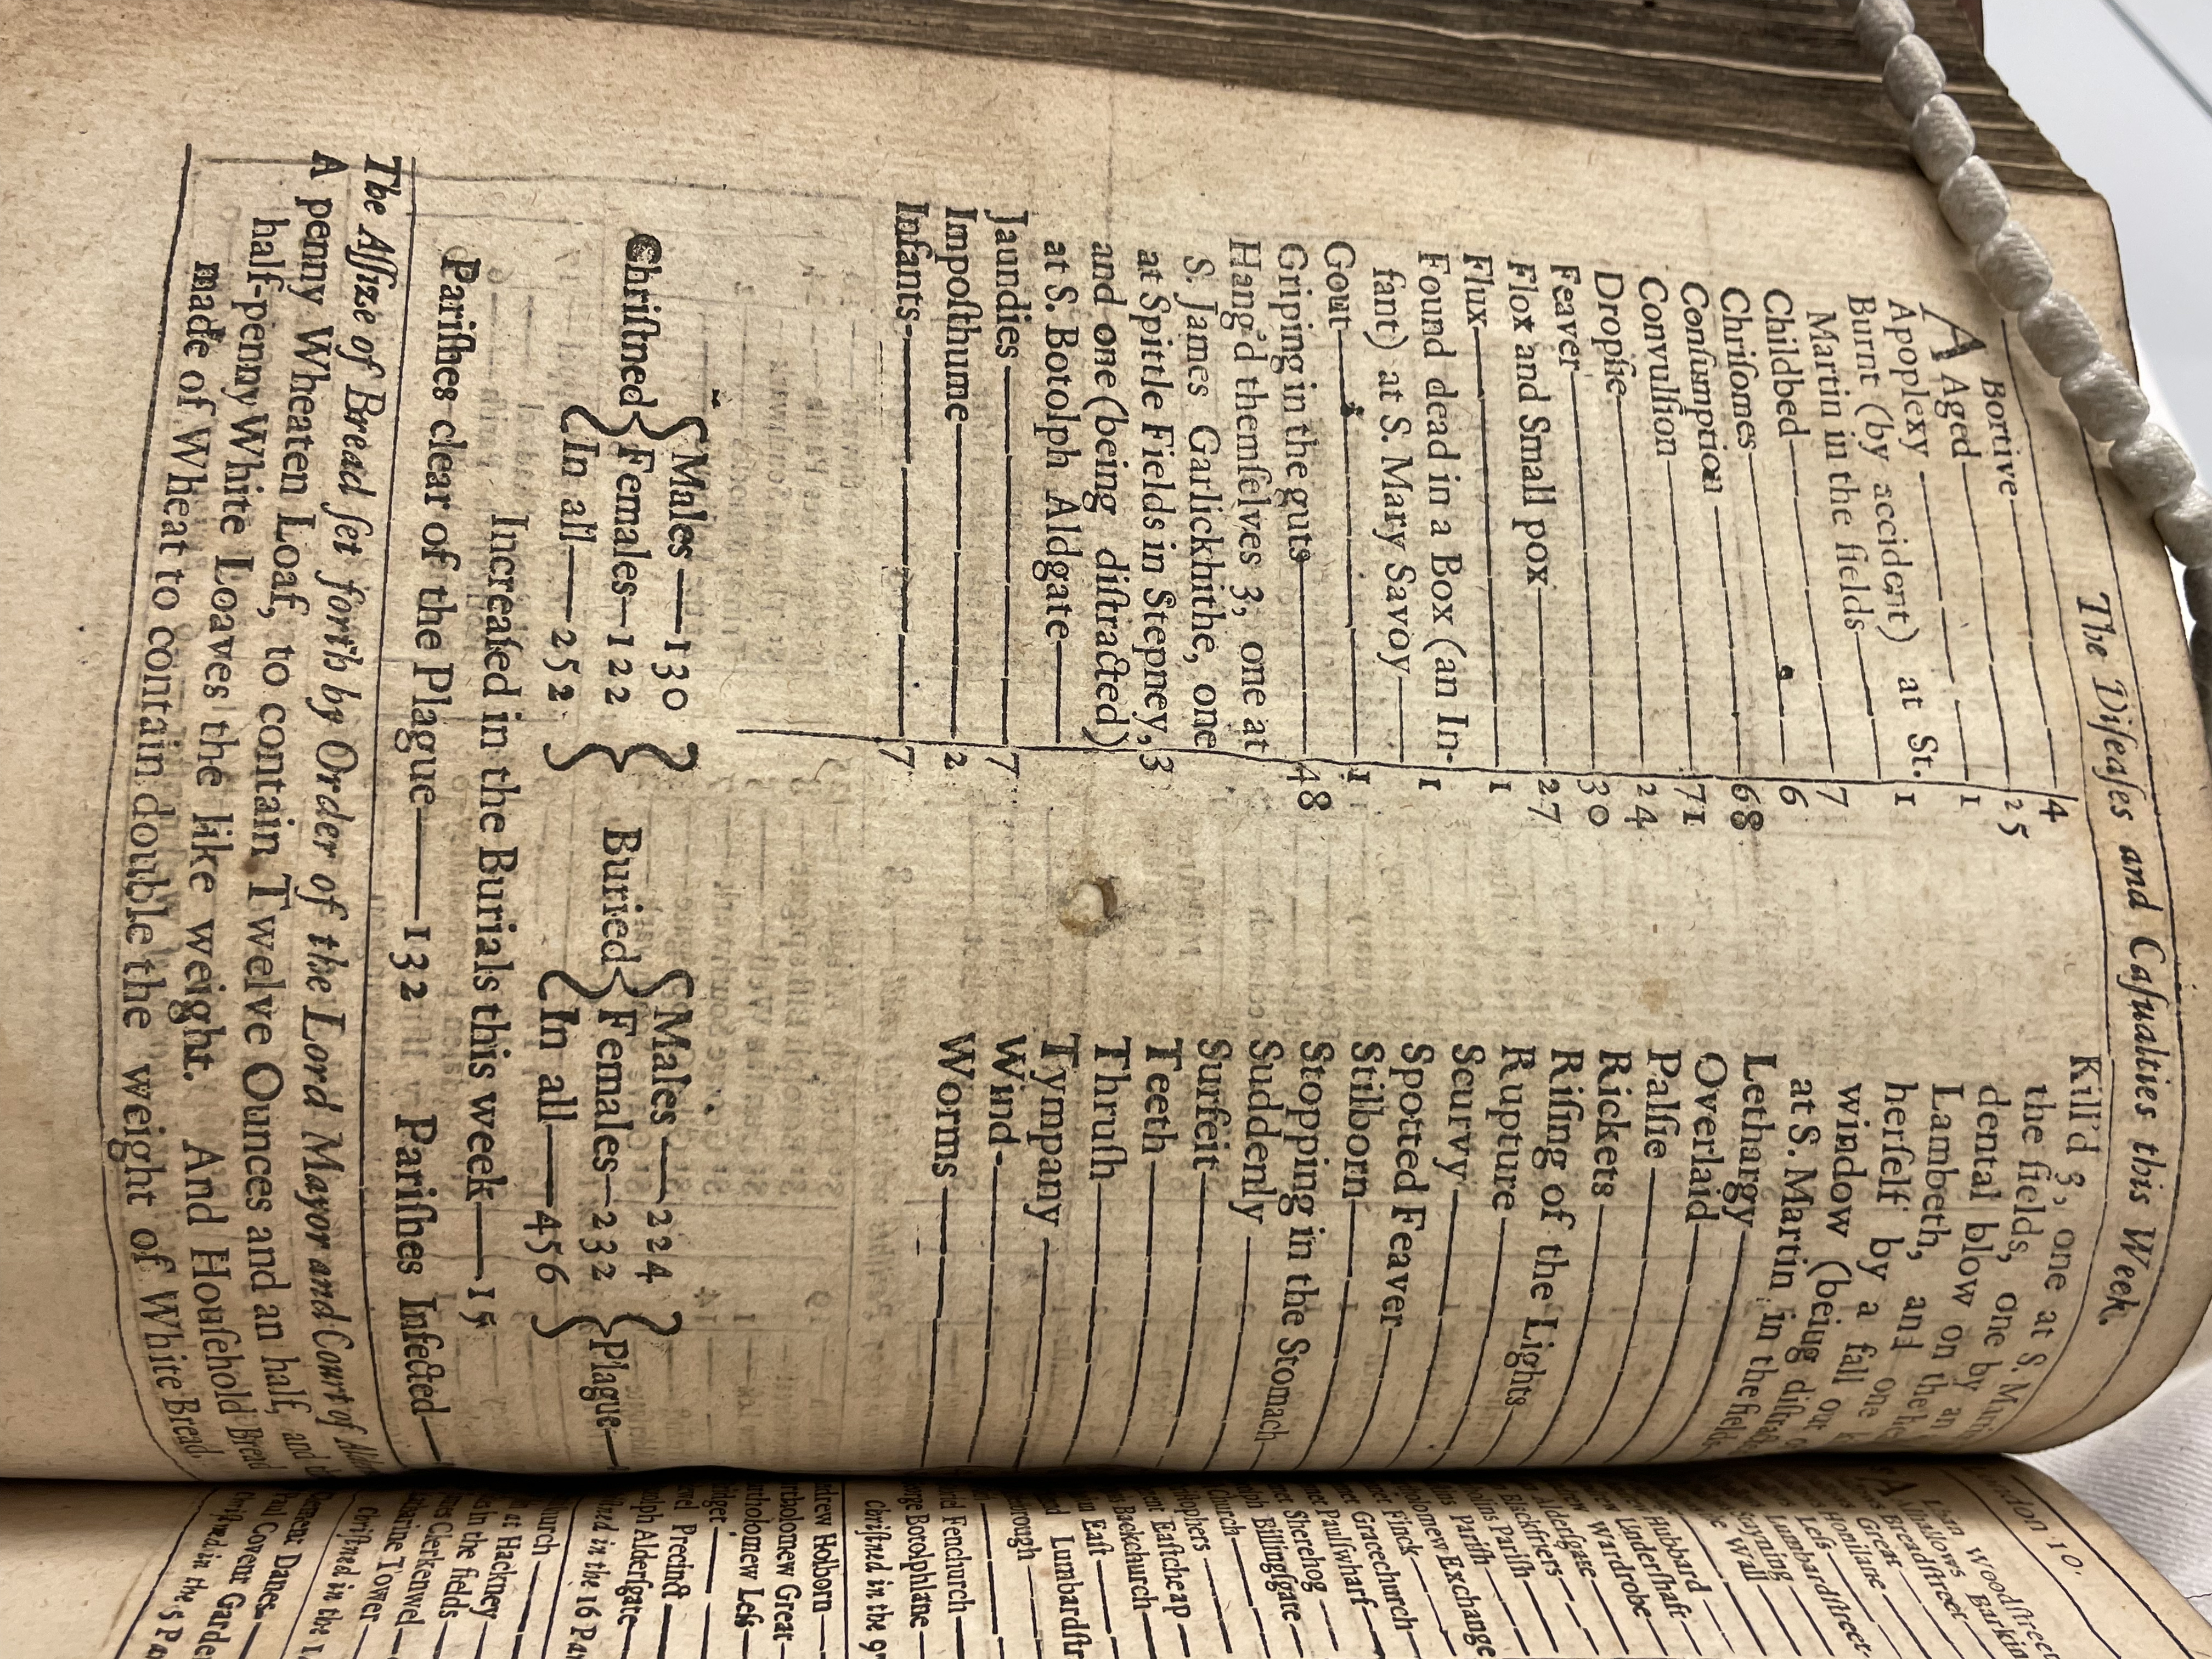 The Diſeaſes and Caſualties this Week.
A Bortive 4
Aged 25
Apoplexy 1
Burnt (by accident) at St.
Martin in the fields 1
Childbed 7
Chriſomes 6
Conſumption 68
Convulſion 71
Dropſie 24
Feaver 30
Flox and Small pox 27
Flux 1
Found dead in a Box (an In-
fant) at S. Mary Savoy 1
Gout 1
Griping in the guts 48
Hang'd themſelves 3, one at
S. James Garlickhithe, one
at Spittle Fields in Stepney,
and one (being diſtracted)
at S. Botolph Aldgate 3
Jaundies 7
Impoſthume 2
Infants 7
Kill'd 3, one at S.
the fields, one by
dental blow on
Lambeth, and
herſelf by a fall out
window (being
at S. Martin in the fields
Lethargy
Overlaid
Palſie
Rickets
Riſing of the Lights
Rupture
Scurvy
Spotted Feaver
Stilborn
Stopping in the Stomach
Suddenly
Surfeit
Teeth
Thruſh
Tympany
Wind
Worms
Chriſtned { Males — 130 Females — 122 In all — 252 }
Buried { Males — 224 Females — 232 In all — 456 } Plague —
Increaſed in the Burials this week — 15
Pariſhes clear of the Plague — 132 Pariſhes Infected —
The Aſſize of Bread ſet forth by Order of the Lord Mayor and Court of
A penny Wheaten Loaf, to contain Twelve Ounces and an half, and
half-penny White Loaves the like weight. And Houſehold Bread
made of Wheat to contain double the weight of White Bread.
London 10.
Woodſtreet
Allhallows Barkin
Breadſtreet
Great
Honilane
Leſs
Lumbardſtreet
Stayning
Wall
Hubbard
Underſhaft
Wardrobe
Alderſgate
Blackfriers
Pariſh
Pariſh
Bartholomew Exchange
Finck
Gracechurch
Paulſwharf
Sherehog
Billingſgate
Church
Eaſtcheap
Backchurch
Eaſt
Lumbardſtr
Fenchurch
George Botolphlane
Chriſtned in the 97
Andrew Holborn
Bartholomew Great
Bartholomew Leſs
Precinct
Botolph Alderſgate
Chriſtned in the 16 Par
at Hackney
in the fields
James Clerkenwel
Katharine Tower
Chriſtned in the 1
Clement Danes
Paul Covent Garden
Chriſtned in the 5 Pa